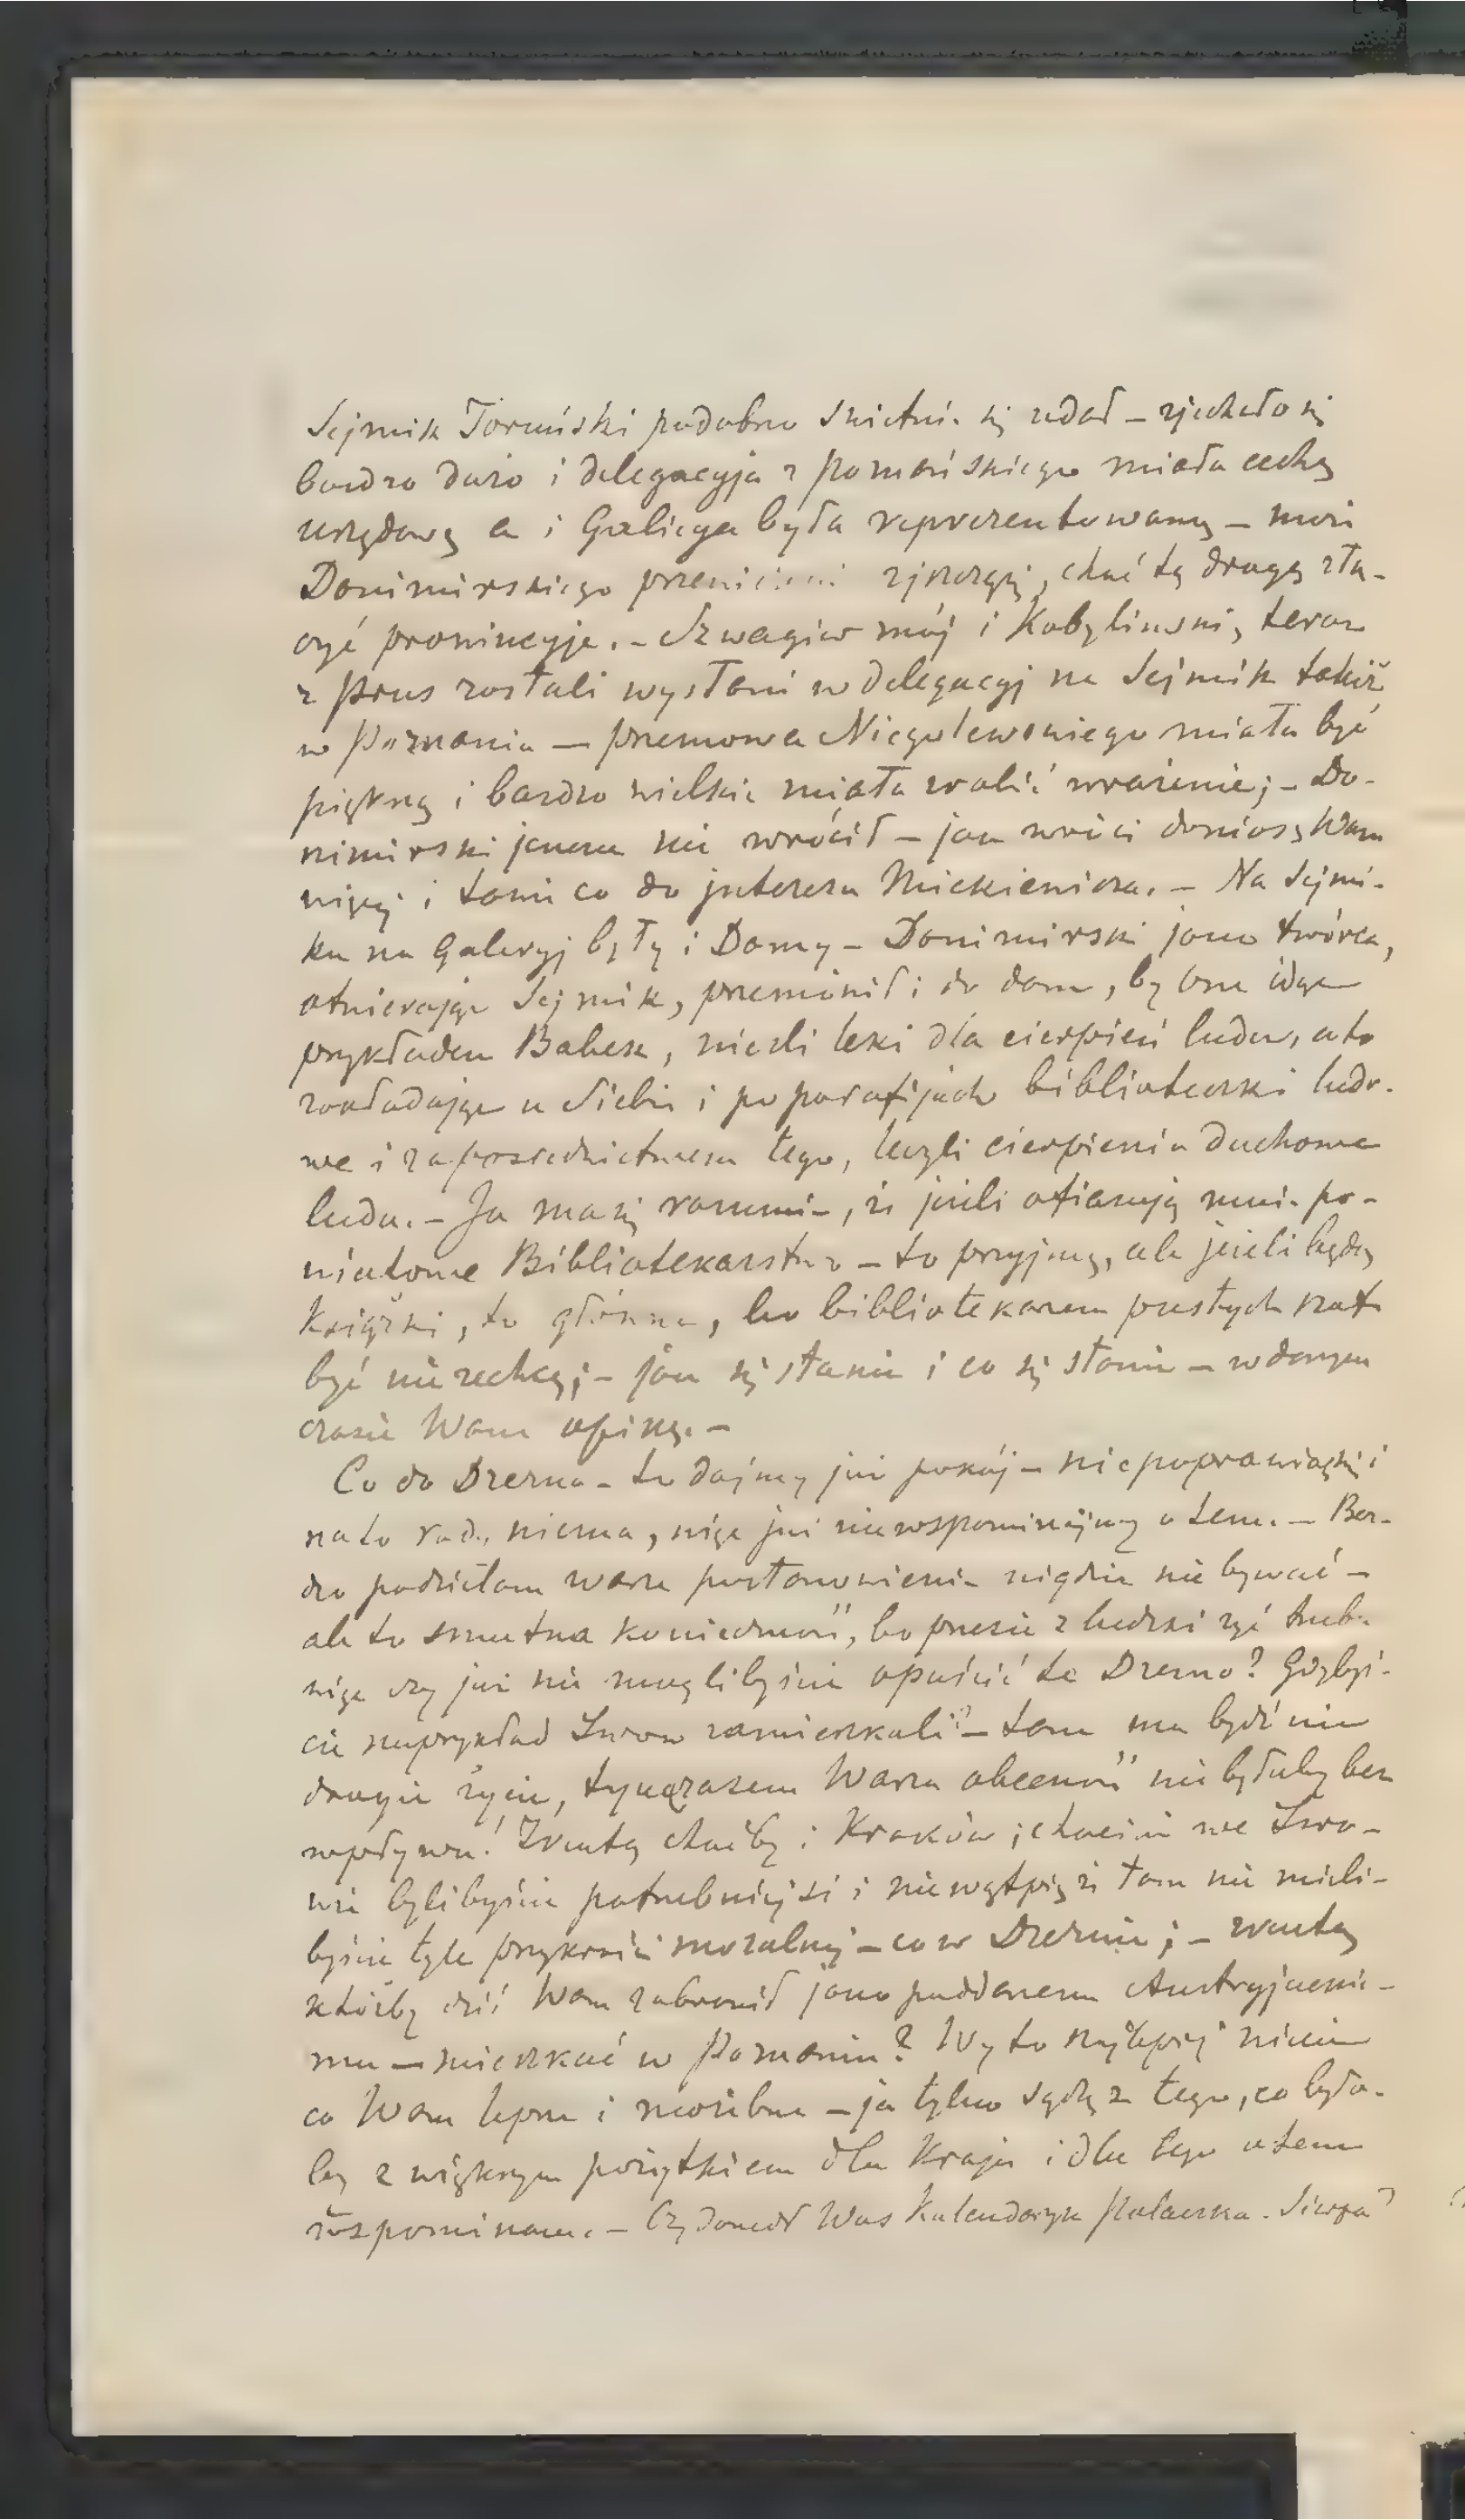 Sejmik Toruński podobno świetnie się udał – zjechało się
bardzo dużo i delegacyja z poznańskiego miała cechę
urzędową a i Galicya była reprezentowaną – może
Donimirskiego zjednoczyć, choć tą drogą złą-
czyć prowincyje. – Szwagier mój i Kobyliński, teraz
z Prus zostali wysłani w delegacyj na Sejmik także
w Poznaniu – przemowa Niegolewskiego miała być
piękną i bardzo wielkie miała zrobić wrażenie; – Do-
nimirski jeszcze nie wrócił – jak wróci doniosę Wam
więcej i tamże co do interesu Mickiewicza. – Na Sejmi-
ku na Galeryj były i Damy – Donimirski jako twórca,
otwierając Sejmik, przemówił i do dam, by one idąc
przykładem Babek, niosli leki dla cierpień ludu, a to
zakładając u siebie i po parafijach biblioteczki ludo-
we i za pośrednictwem tego, leczyli cierpienia duchowe
ludu. – Ja ma się rozumie, że jeżeli ofiarują mnie po-
wiatowe Bibliotekarstwo – to przyjmę, ale jeżeli będą
książki, to główna, bo bibliotekarzem pustych szaf
być nie zechcę; – jak się stanie i co się stanie – w danym
czasie Wam opiszę. –
Co do Drezna – to dajmy już pokój – nie poprawią się i
na to rady niema, więc już nie wspominajmy o tem. – Bar-
dzo podzielam wasze postanowienie nigdzie nie bywać –
ale to smutna konieczność, bo przecie z ludzki żyć trzeba
więc czy już nie moglibyście opuścić te Drezno? Gdybyś-
cie naprzykład Lwów zamieszkali? – tam ma być nie
drogie życie, tymczasem Wasza obecność nie byłaby bez
wpływu! Zresztą choćby i Kraków; chociaż we Lwo-
wie bylibyście potrzebniejsi i nie wątpię że tam nie mieli-
byście tyle przykrości moralnej – co w Dreznie; – zresztą
któżby dziś Wam zabronił jako poddanemu Austryjackie-
mu – mieszkać w Poznaniu? Wy to najlepiej wiecie
co Wam lepsze i możebne – ja tylko sądzę z tego, co było-
by z większym pożytkiem dla Kraju i dla tego o tem
wspominam. – Czy doszedł Was Kalendarzyk